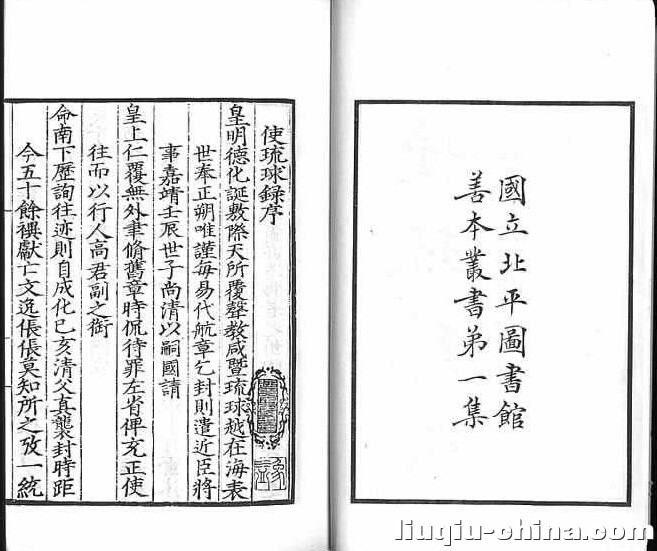 國立北平圖書館
善本叢書第一集
使琉球録序
皇明德化誕敷際天所覆聲教咸暨琉球越在海表
世奉正朔唯謹每易代航章乞封則遣近臣將
事嘉靖壬辰世子尚清以嗣國請
皇上仁覆無外聿脩舊章時侃待罪左省俾充正使
往而以行人高君副之銜
命南下歷詢往迹則自成化己亥清父真襲封時距
今五十餘禩獻亡文逸倀倀莫知所之攷一統
liuqiu-china.com